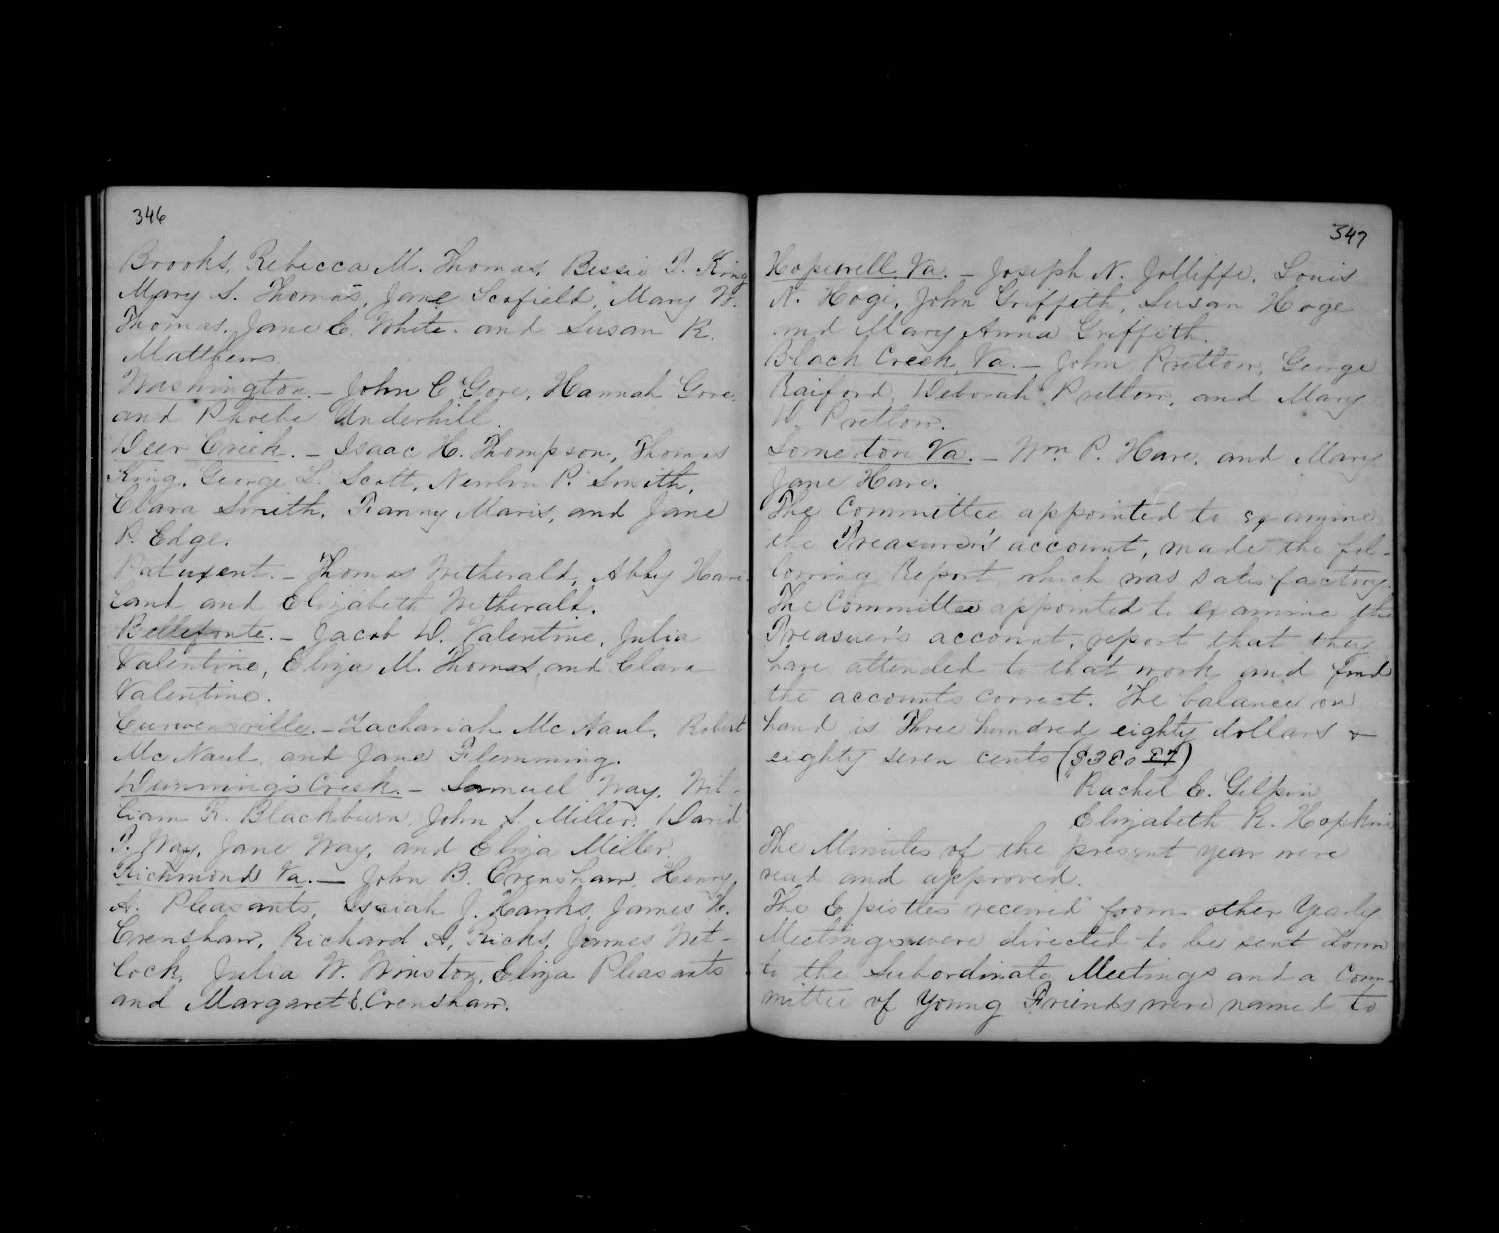 346
Brooks, Rebecca M. Thomas, Bessie T. King
Mary S. Thomas, Jane Scofield, Mary W.
Thomas, Jane E. White. and Susan R.
Matthews.
Washington. – John C. Gore, Hannah Gore,
and Phoebe Underhill.
Deer Creek. – Isaac H. Thompson, Thomas
King, George S. Scott, Newlin P. Smith,
Clara Smith, Fanny Maris, and Jane
P. Edge.
Patuxent. – Thomas Witherald, Abby Havi-
land and Elizabeth Witherald.
Bellefonte. – Jacob D. Valentine, Julia
Valentine, Eliza M. Thomas, and Clara
Valentine.
Curwensville. – Zachariah Mc Naul, Robert
Mc Naul, and Jane Flemming.
Dunning's Creek. – Samuel Way, Wil-
liam K. Blackburn, John S. Miller, David
T. Way, Jane Way, and Eliza Miller.
Richmond Va. – John B. Crenshaw, Henry
A. Pleasants, Isaiah J. Hanks, James H.
Crenshaw, Richard A. Ricks, James Wet-
lock, Julia W. Winston, Eliza Pleasants
and Margaret E. Crenshaw.
347
Hopewell Va. – Joseph N. Jolliffe, Louis
N. Hogi, John Griffeth, Susan Hoge
and Mary Anna Griffeth.
Black Creek, Va. – John Pretlow, George
Raiford, Deborah Pretlow, and Mary
D. Pretlow.
Somerton Va. – Wm P. Hare, and Mary
Jane Hare.
The Committee appointed to examine
the Treasurer's account, made the fol-
lowing Report, which was satisfactory.
The Committee appointed to examine the
Treasurer's account, report that they
have attended to that work and find
the accounts correct. The balance on
hand is Three hundred eighty dollars &
eighty seven cents ($380 87)
Rachel E. Gilpin
Elizabeth R. Hopkins
The Minutes of the present year were
read and approved.
The Epistles received from other Yearly
Meetings were directed to be sent down
to the Subordinate Meetings and a Com-
mittee of Young Friends were named to